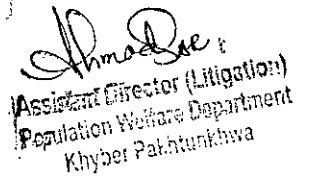 Assistant Director (Litigation)
Population Welfare Department
Khyber Pakhtunkhwa